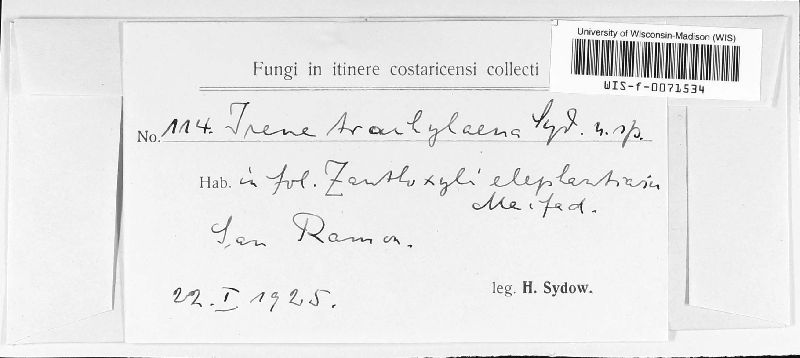 University of Wisconsin-Madison (WIS)
WIS-f-0071534
Fungi in itinere costaricensi collecti
No. 114. Irene trachylaena Syd. n. sp.
Hab. in fol. Zanthoxyli elephantiasis
Macfad.
San Ramon.
22. I 1925.
leg. H. Sydow.